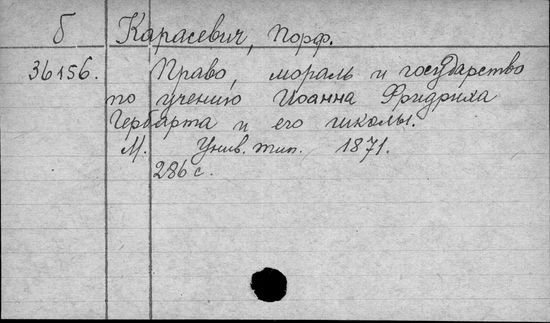 б Карасевич, Порф.
36156. Право, мораль и государство
по учению Иоанна Фридриха
Гербарта и его школы.
М. Унив. тип. 1871.
286 с.